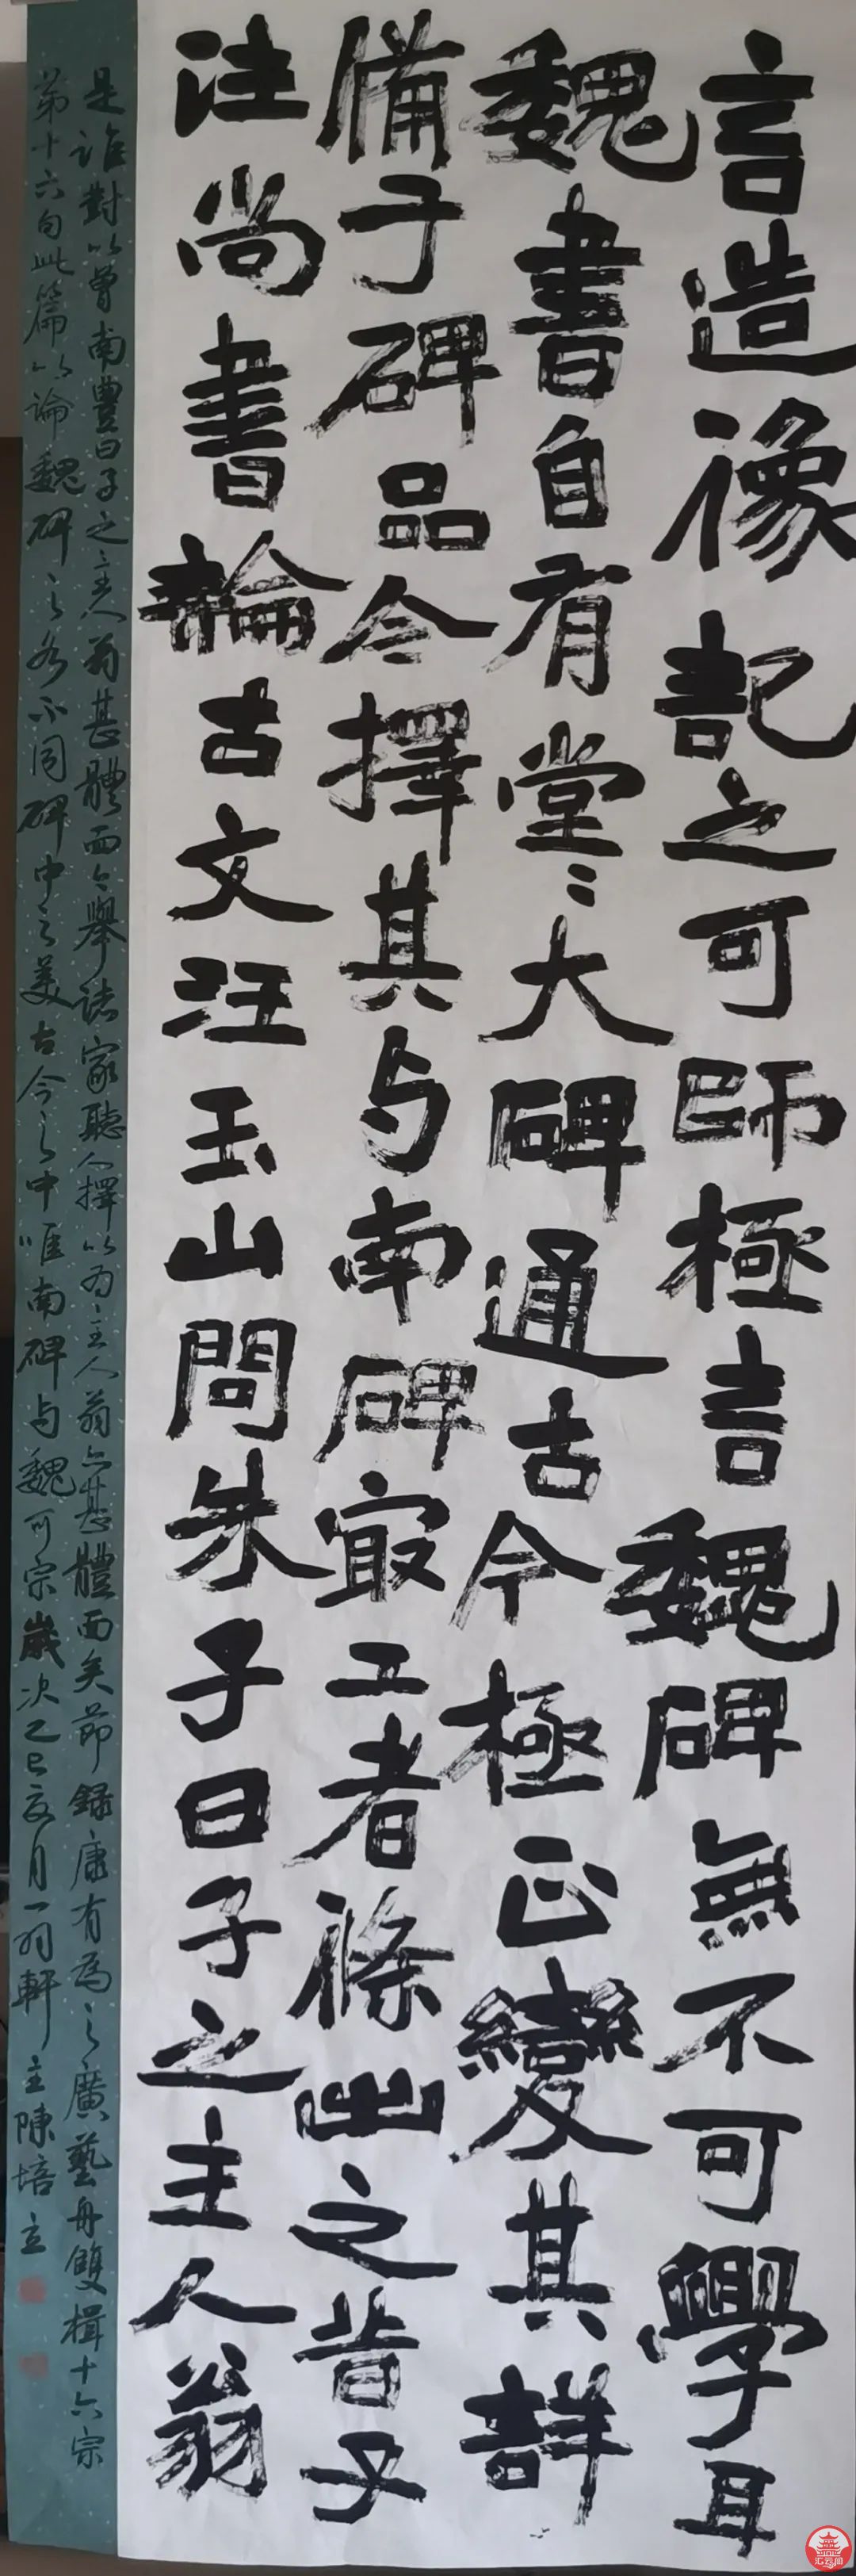 言造像記之可師極言魏碑無不可學耳
魏書自有堂〻大碑通古今極正變其詳
備于碑品今擇其与南碑冣工者條出之昔子
注尚書論古文汪玉山問朱子曰子之主人翁
是誰對以曾南豐曰子之主人翁甚體面今舉諸家聽人擇以為主人翁亦甚體面矣節錄康有為之廣藝舟雙楫十六宗
第十六句此篇以論魏碑之各不同碑中之美古今之中唯南碑与魏可宗歲次乙巳亥月一羽軒主陳培立